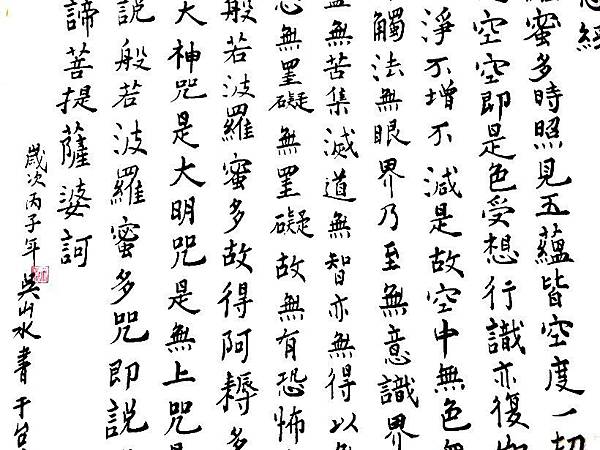 心經
蜜多時照見五蘊皆空度一切
空空即是色受想行識亦復如
淨不增不減是故空中無色無
觸法無眼界乃至無意識界
盡無苦集滅道無智亦無得以
心無罣礙無罣礙故無有恐怖
般若波羅蜜多故得阿耨多
大神咒是大明咒是無上咒是
說般若波羅蜜多咒即說
諦菩提薩婆訶
歲次丙子年吳山水書于台